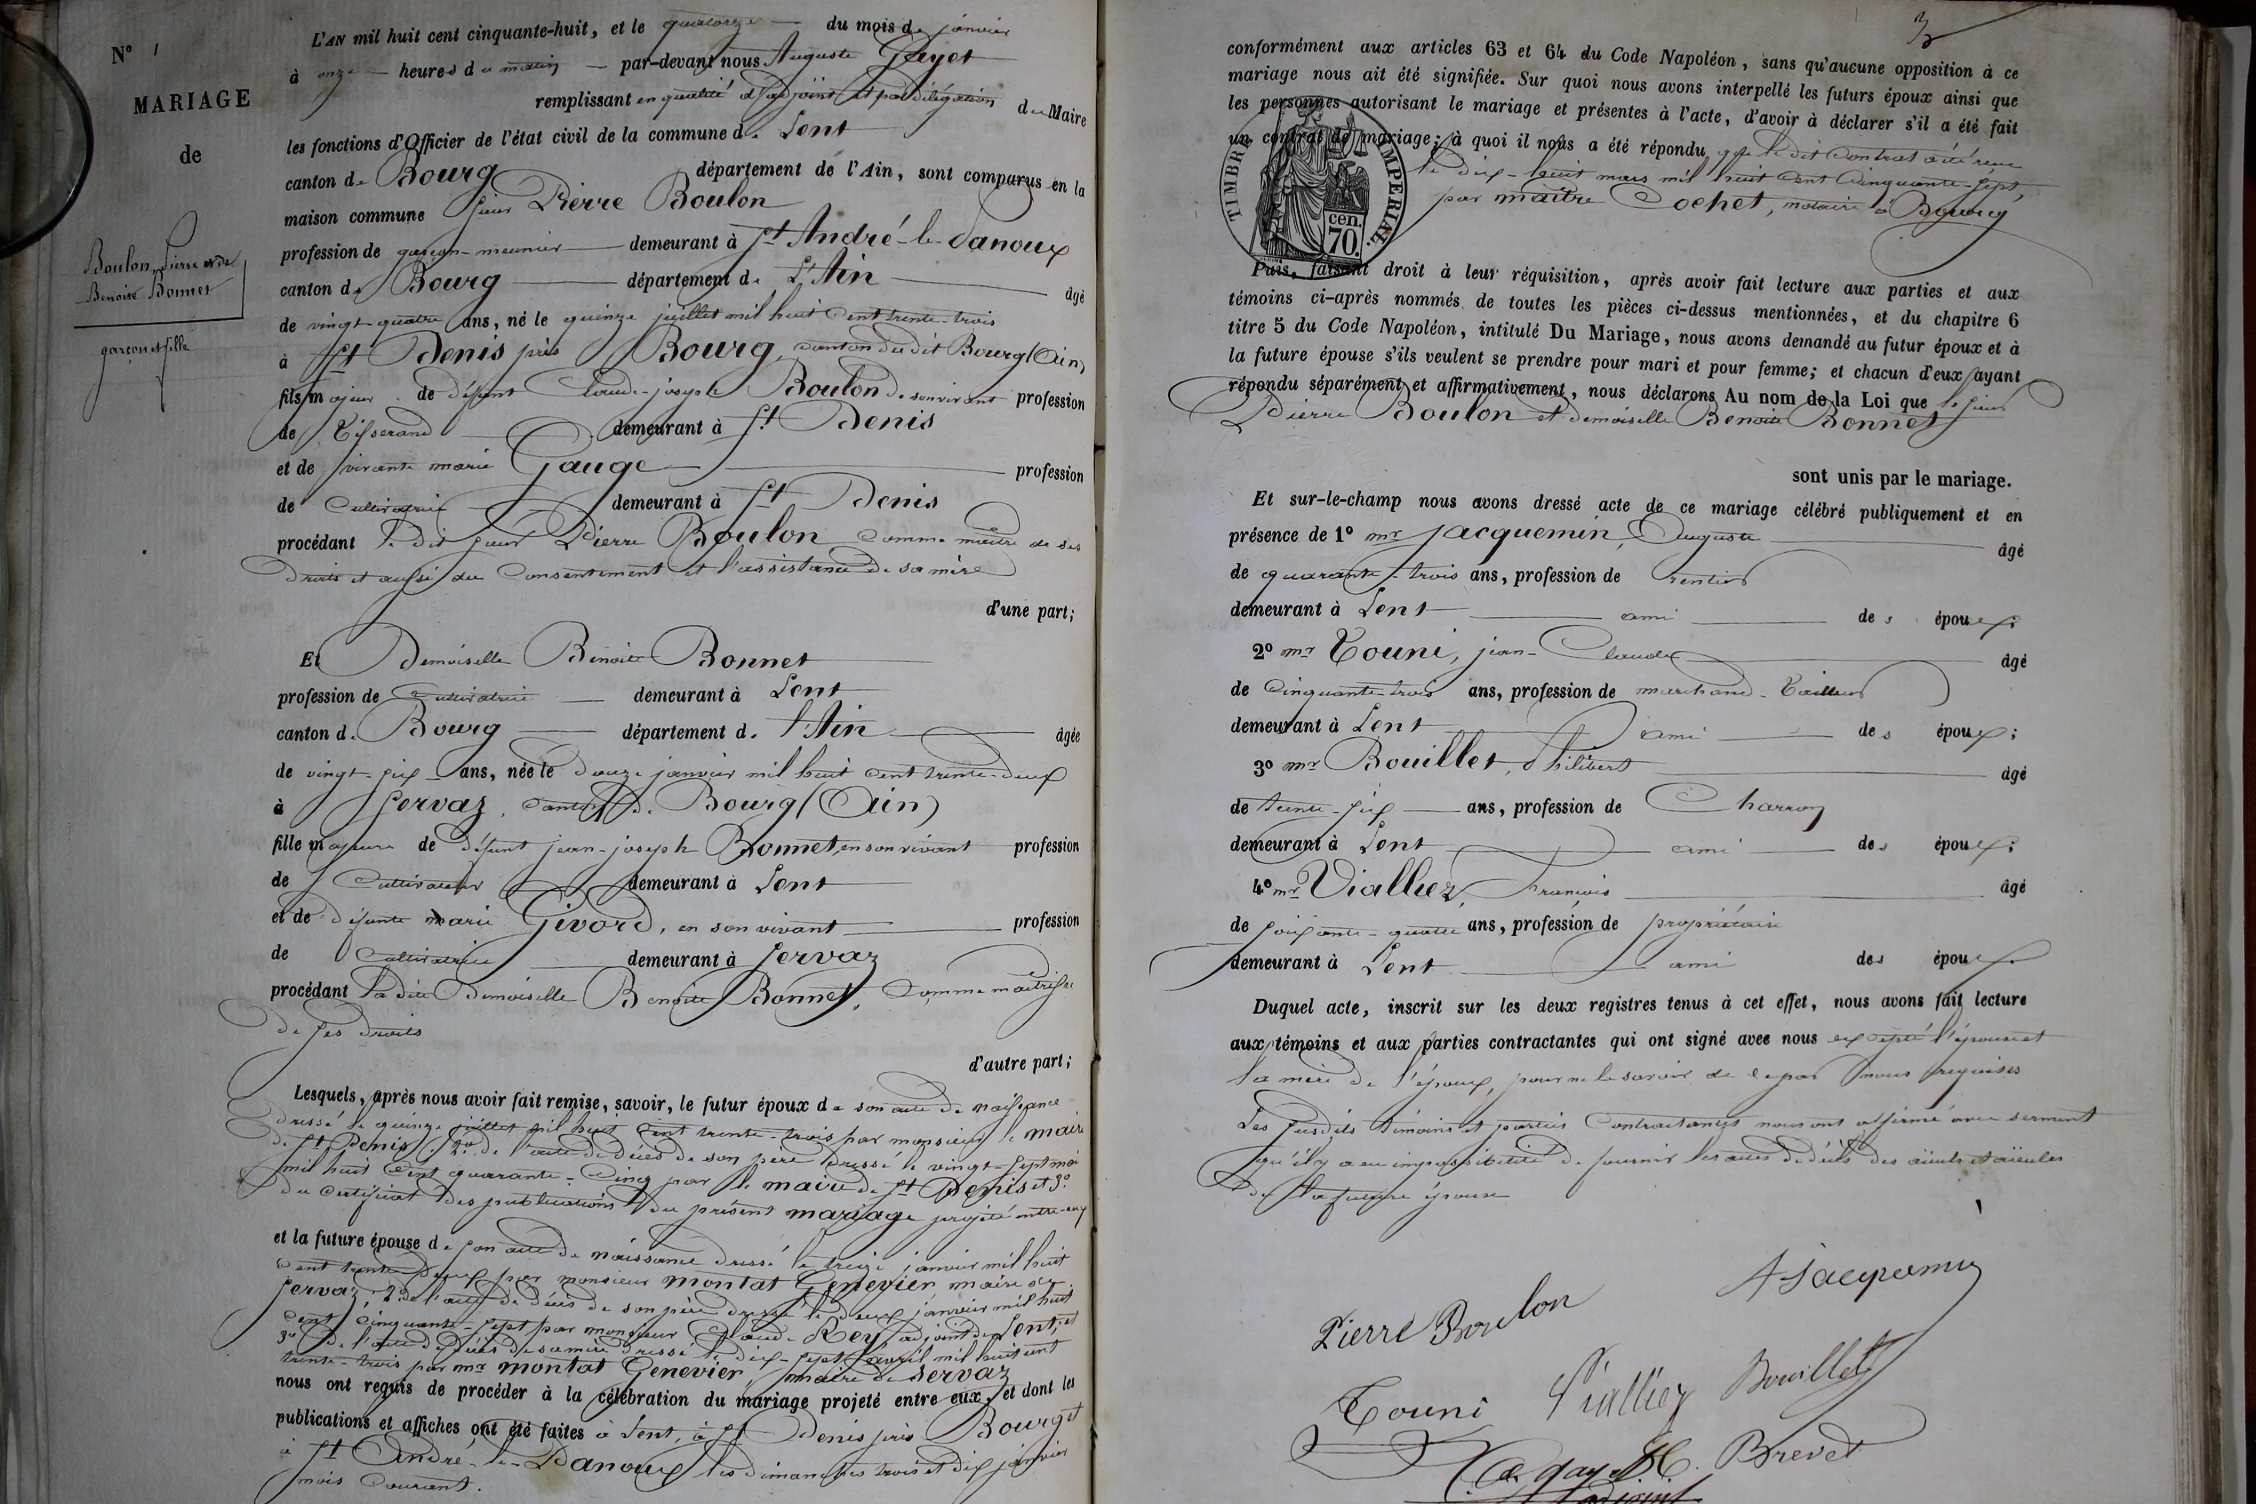 N° 1
MARIAGE
de
Boulon, Pierre et de
Benoite Bonnet
garçon et fille
L'AN mil huit cent cinquante-huit, et le quatorze du mois de janvier
à onze heures du matin par-devant nous Auguste Gayet
remplissant en qualité d'adjoint et par délégation du Maire
les fonctions d'Officier de l'état civil de la commune de Lent
canton de Bourg département de l'Ain, sont comparus en la
maison commune sieur Pierre Boulon
profession de garçon-meunier demeurant à St André-le-Panoux
canton de Bourg département de L'Ain âgé
de vingt-quatre ans, né le quinze juillet mil huit cent trente-trois
à St Denis près Bourg, canton du dit Bourg (Ain)
fils majeur de défunt Claude-joseph Boulon de son vivant profession
de Tisserand demeurant à St Denis
et de vivante marie Gauge profession
de Cultivatrice demeurant à St Denis
procédant le dit sieur Pierre Boulon comme maître de ses
droits et aussi du consentement et l'assistance de sa mère
d'une part;
Et Demoiselle Benoite Bonnet
profession de Cultivatrice demeurant à Lent
canton de Bourg département de l'Ain âgée
de vingt-six ans, née le douze janvier mil huit cent trente-deux
à Servaz, canton de Bourg (Ain)
fille majeure de défunt jean-joseph Bonnet, en son vivant profession
de Cultivateur demeurant à Lent
et de défunte marie Givord, en son vivant profession
de Cultivatrice demeurant à Servaz
procédant la dite Demoiselle Benoite Bonnet, comme maîtresse
de ses droits
d'autre part;
Lesquels, après nous avoir fait remise, savoir, le futur époux de son acte de naissance
dressé le quinze juillet mil huit cent trente-trois par monsieur le maire
de St Denis; 2° de l'acte de décès de son père dressé le vingt-sept mai
mil huit cent quarante-cinq par le maire de St Denis et 3°
du certificat des publications du présent mariage projeté entre eux
et la future épouse de son acte de naissance dressé le treize janvier mil huit
cent trente-deux par monsieur montat Genevier, maire de
Servaz; 2° de l'acte de décès de son père dressé le deux janvier mil huit
cent cinquante-sept par monsieur Claude Rey, adjoint de Lent; et
3° de l'acte de décès de sa mère dressé le dix-sept avril mil huit cent
trente-trois par mr montat Genevier, maire de Servaz
nous ont requis de procéder à la célébration du mariage projeté entre eux, et dont les
publications et affiches ont été faites à Lent, à St Denis près Bourg et
à St André-le-Panoux les dimanches trois et dix janvier
mois courant.
3
conformément aux articles 63 et 64 du Code Napoléon, sans qu'aucune opposition à ce
mariage nous ait été signifiée. Sur quoi nous avons interpellé les futurs époux ainsi que
les personnes autorisant le mariage et présentes à l'acte, d'avoir à déclarer s'il a été fait
un contrat de mariage; à quoi il nous a été répondu que le dit contrat a été reçu
le dix-huit mars mil huit cent cinquante-sept,
par maître Cochet, notaire à Bourg
TIMBRE IMPERIAL.
cen.
70.
Puis, faisant droit à leur réquisition, après avoir fait lecture aux parties et aux
témoins ci-après nommés de toutes les pièces ci-dessus mentionnées, et du chapitre 6
titre 5 du Code Napoléon, intitulé Du Mariage, nous avons demandé au futur époux et à
la future épouse s'ils veulent se prendre pour mari et pour femme; et chacun d'eux ayant
répondu séparément et affirmativement, nous déclarons Au nom de la Loi que le sieur
Pierre Boulon et demoiselle Benoite Bonnet
sont unis par le mariage.
Et sur-le-champ nous avons dressé acte de ce mariage célébré publiquement et en
présence de 1° mr jacquemin, Auguste âgé
de quarante-trois ans, profession de rentier
demeurant à Lent ami des époux;
2° mr Touni, jean-Claude âgé
de cinquante-trois ans, profession de marchand-Tailleur
demeurant à Lent ami des époux;
3° mr Bouillet, Philibert âgé
de trente-six ans, profession de Charron
demeurant à Lent ami des époux;
4° mr Viallier, François âgé
de soixante-quatre ans, profession de propriétaire
demeurant à Lent ami des époux.
Duquel acte, inscrit sur les deux registres tenus à cet effet, nous avons fait lecture
aux témoins et aux parties contractantes qui ont signé avec nous excepté l'épouse et
la mère de l'époux, pour ne le savoir, de ce par nous requises
Les susdits témoins et parties contractantes nous ont affirmé avec serment
qu'il y a eu impossibilité de fournir les actes de décès des aïeuls et aïeules
de la future épouse
Pierre Boulon
A Jacquemin
Touni Viallier Bouillet
Brevet
adjoint